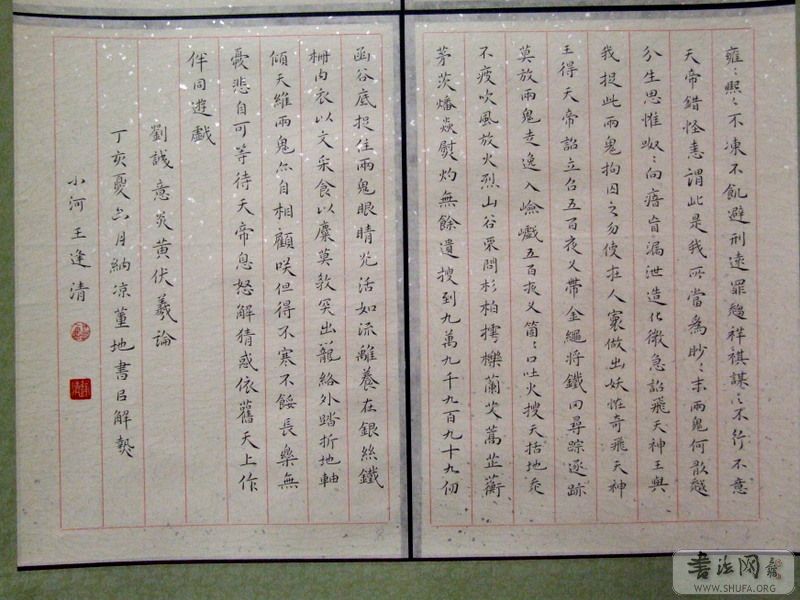 雍〻熙〻不凍不飢避刑遠罪趨祥祺謀〻不行不意
天帝錯怪恚謂此是我所當為眇〻末兩鬼何敢越
分生思惟呶〻向瘖盲漏泄造化微急詔飛天神王與
我捉此兩鬼拘囚之勿使在人寰做出妖怪奇飛天神
王得天帝詔立召五百夜叉帶金繩將鐵网尋踪逐跡
莫放兩鬼走逸入嶮巇五百夜叉箇〻口吐火搜天括地走
不疲吹風放火烈山谷栗問杉柏樗櫟蘭艾蒿芷蘅
茅茨燔焱熨灼無餘遺搜到九萬九千九百九十九仞
函谷底捉住兩鬼眼睛光活如流離養在銀絲鐵
柵內衣以文采食以糜莫教突出籠絡外踏折地軸
傾天維兩鬼亦自相顧咲但得不寒不餒長樂無
憂悲自可等待天帝息怒解猜惑依舊天上作
伴同遊戲
劉誠意炎黃伏羲論
丁亥夏六月納凉董地書以解熱
小河王逢清
書法网
WWW.SHUFA.ORG